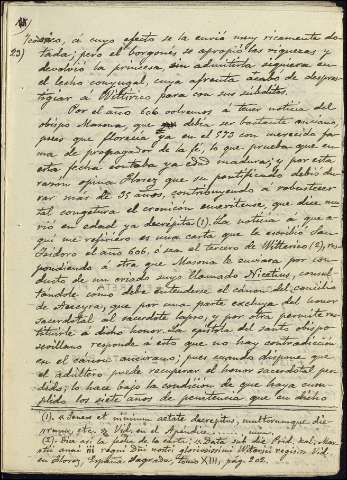 23)
Teodorico, á cuyo efecto se la envió muy ricamente do-
tada; pero el borgoñés se apropió las riquezas y
devolvió la princesa, sin admitirla siquiera en
el lecho conyugal, cuya afrenta acabó de despres-
tigiar á Witterico para con sus súbditos.
Por el año 606 volvemos á tener noticia del
obispo Masona, que debía ser bastante anciano,
pues que florecía ya en el 573 con merecida fa-
ma de propagador de la fé, lo que prueba que en
esta fecha contaba ya edad madura; y por esta
razon opina Florez que su pontificado debió du-
rar mas de 35 años, contribuyendo á robustecer
tal congetura el cronicón emeritense, que dice mu-
rió en edad ya decrépita (1). La noticia á que a-
quí me refiriero es una carta que le escribió San
Isidoro el año 606, ó sea el tercero de Witterico (2), res-
pondiendo á otra que Masona le enviara por con-
ducto de un criado suyo llamado Nicetius, consul-
tándole como debía entenderse el cánon del concilio
de Ancyra, que por una parte excluye del honor
sacerdotal al sacerdote lapso, y por otra permite res-
tituirle á dicho honor. La epístola del santo obispo
sevillano responde á esto que no hay contradicción
en el cánon ancirano; pues cuando dispone que
el adúltero puede recuperar el honor sacerdotal per-
dido, lo hace bajo la condición de que haya cum-
plido los siete años de penitencia que en dicho
(1). « Senex et nimium aetate decrepitus, multorumque die-
rum, etc. » Vid. en el Apéndice
(2). Era así la fecha de la carta: « Data sub die Prid. kal. Mar-
tii anni III regni Dni nostri gloriosissimi Witerici regis. » Vid.
en Florez, España Sagrada, tomo XIII, pág. 202.